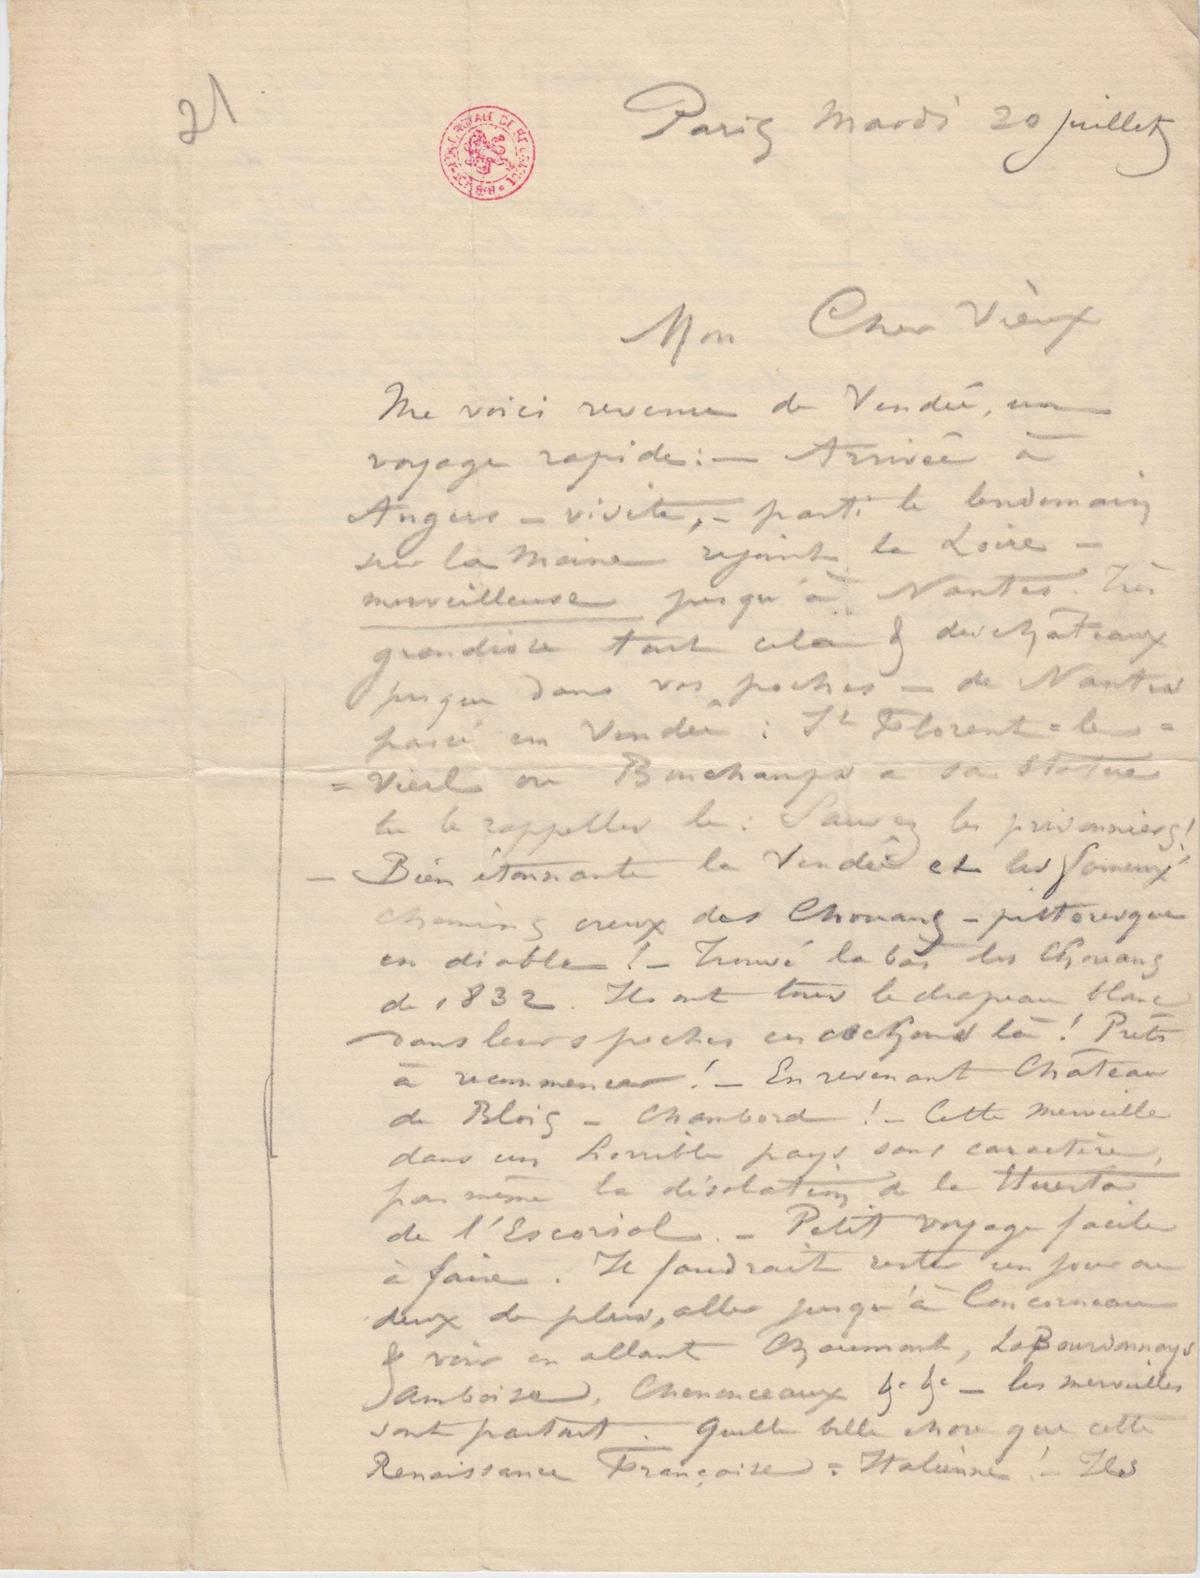 21
BIBLIOTHÈQUE ROYALE DE BELGIQUE
Paris Mardi 20 juillet
Mon Cher Vieux
Me voici revenu de Vendée, un
voyage rapide: — Arrivée à
Angers — visite, — parti le lendemain
sur la Maine rejoint la Loire —
merveilleuse jusqu'à Nantes. Très
grandiose tout cela & des châteaux
jusque dans vos poches — de Nantes
passé en Vendée : St Florent = le =
= Vieil ou Bonchamps a sa statue
tu te rappelles le : Sauvez les prisonniers!
— Bien étonnante la Vendée et les fameux
chemins creux des Chouans — pittoresque
en diable ! — Trouvé la bas les Chouans
de 1832. Ils ont tous le drapeau blanc
dans leurs poches ces cochons là ! Prêts
à recommencer ! — En revenant Château
de Blois — Chambord ! — Cette merveille
dans un horrible pays sans caractère,
pas même la désolation de la Huerta
de l'Escorial. — Petit voyage facile
à faire. Il faudrait rester un jour ou
deux de plus, aller jusqu'à Concarneau
& voir en allant Chaumont, La Bourdonnays
Amboise, Chenonceaux &c &c — les merveilles
sont partout. Quelle belle chose que cette
Renaissance Française = Italienne ! — Ils